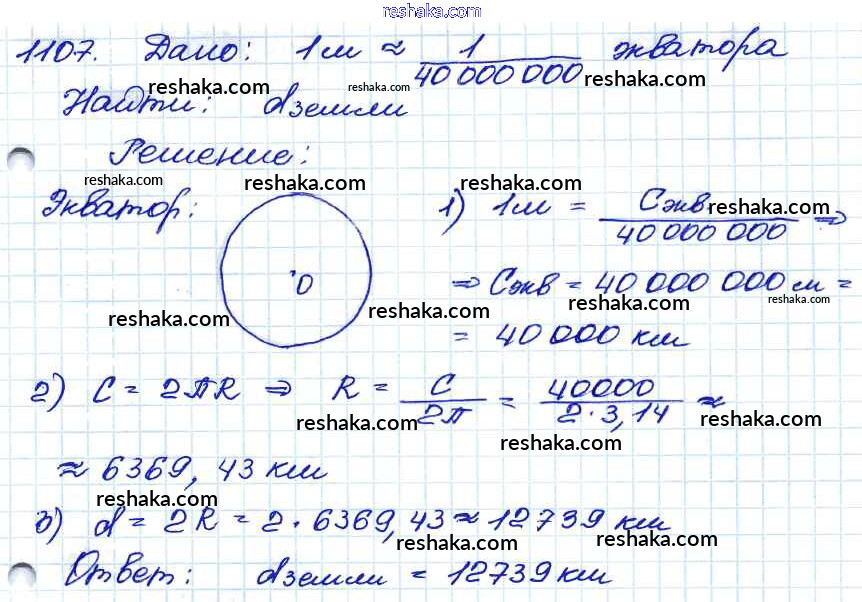 reshaka.com
1107. Дано: 1м ≈ 1/40 000 000 экватора
reshaka.com reshaka.com reshaka.com
Найти: dземли
Решение:
reshaka.com reshaka.com reshaka.com
Экватор: 1) 1м = Cэкв/40 000 000 ⇒
reshaka.com
O
⇒ Cэкв = 40 000 000 м =
reshaka.com reshaka.com reshaka.com reshaka.com
= 40 000 км
2) C = 2πR ⇒ R = C/2π = 40000/2·3,14 ≈
reshaka.com reshaka.com reshaka.com
≈ 6369,43 км
reshaka.com
3) d = 2R = 2·6369,43 ≈ 12739 км
reshaka.com reshaka.com
Ответ: dземли = 12739 км